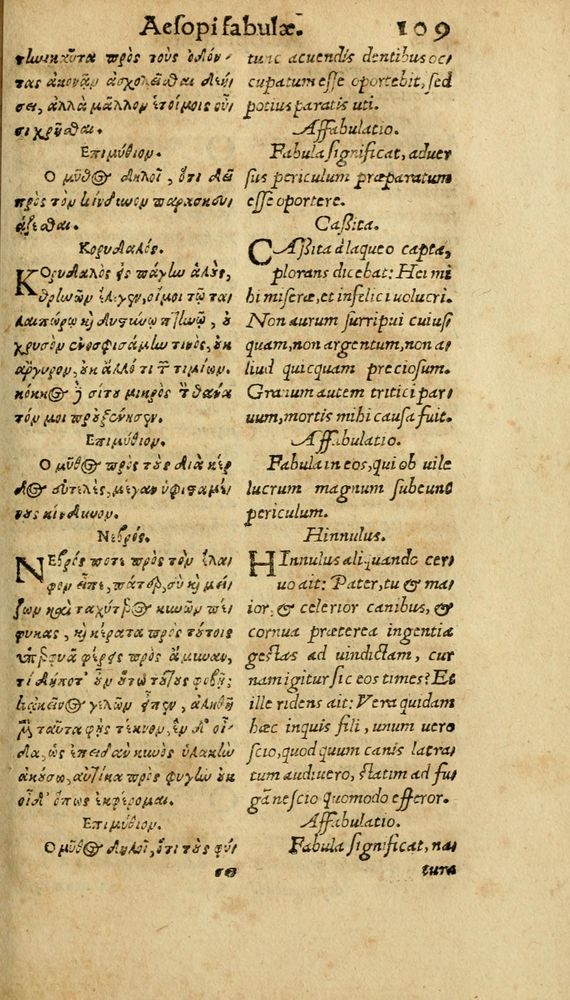 Aesopi fabulæ. 109
τηνικαῦτα πρὸς τοὺς ὀδόν-
τας ἀκονᾶν ἀσχολεῖσθαι δεή-
σει, ἀλλὰ μᾶλλον ἑτοίμοις οὖ-
σι χρῆσθαι.
Επιμύθιον.
Ο μῦθος δηλοῖ, ὅτι δεῖ
πρὸς τὸν κίνδυνον παρασκευ-
άζεσθαι.
Κορυδαλός.
Κορυδαλὸς εἰς πάγην ἁλοὺς,
θρηνῶν ἔλεγεν, οἴμοι τῷ τα-
λαιπώρῳ καὶ δυστήνῳ πτηνῷ, οὐ
χρυσὸν ἐνοσφισάμην τινὸς, οὐκ
ἄργυρον, οὐκ ἄλλό τι τῶν τιμίων.
κόκκος δὲ σίτου μικρὸς τὸν θάνα
τόν μοι προὐξένησεν.
Επιμύθιον.
Ο μῦθος πρὸς τοὺς διὰ κέρ
δος εὐτελὲς, μέγαν ὑφισταμέ-
νους κίνδυνον.
Νεβρός.
Νεβρός ποτε πρὸς τὸν ἔλα-
φον εἶπε, πάτερ, σὺ καὶ μεί-
ζων καὶ ταχύτερος κυνῶν πέ-
φυκας, καὶ κέρατα πρὸς τούτοις
ὑπερφυᾶ φέρεις πρὸς ἄμυναν,
τί δήποτ' οὖν οὕτω τούτους φοβῇ;
κἀκεῖνος γελῶν εἶπεν, ἀληθῆ
μὲν ταῦτα φῂς τέκνον, ἓν δ' οἶ-
δα, ὡς ἐπειδὰν κυνὸς ὑλακὴν
ἀκούσω, αὐτίκα πρὸς φυγὴν οὐκ
οἶδ' ὅπως ἐκφέρομαι.
Επιμύθιον.
Ο μῦθος δηλοῖ, ὅτι τοὺς φύ-
σει
tunc acuendis dentibus oc-
cupatum esse oportebit, sed
potius paratis uti.
Affabulatio.
Fabula significat, aduer-
sus periculum præparatum
esse oportere.
Cassita.
CAssita à laqueo capta,
plorans dicebat: Hei mi
hi miseræ, et infelici uolucri.
Non aurum surripui cuius-
quam, non argentum, non a-
liud quicquam preciosum.
Granum autem tritici par-
uum, mortis mihi causa fuit.
Affabulatio.
Fabula in eos, qui ob uile
lucrum magnum subeunt
periculum.
Hinnulus.
HInnulus aliquando cer-
uo ait: Pater, tu & ma-
ior, & celerior canibus, &
cornua præterea ingentia
gestas ad uindictam, cur
nam igitur sic eos times? Et
ille ridens ait: Vera quidam
hæc inquis fili, unum uero
scio, quod quum canis latra-
tum audiuero, statim ad fu-
gã nescio quomodo efferor.
Affabulatio.
Fabula significat, na-
tura